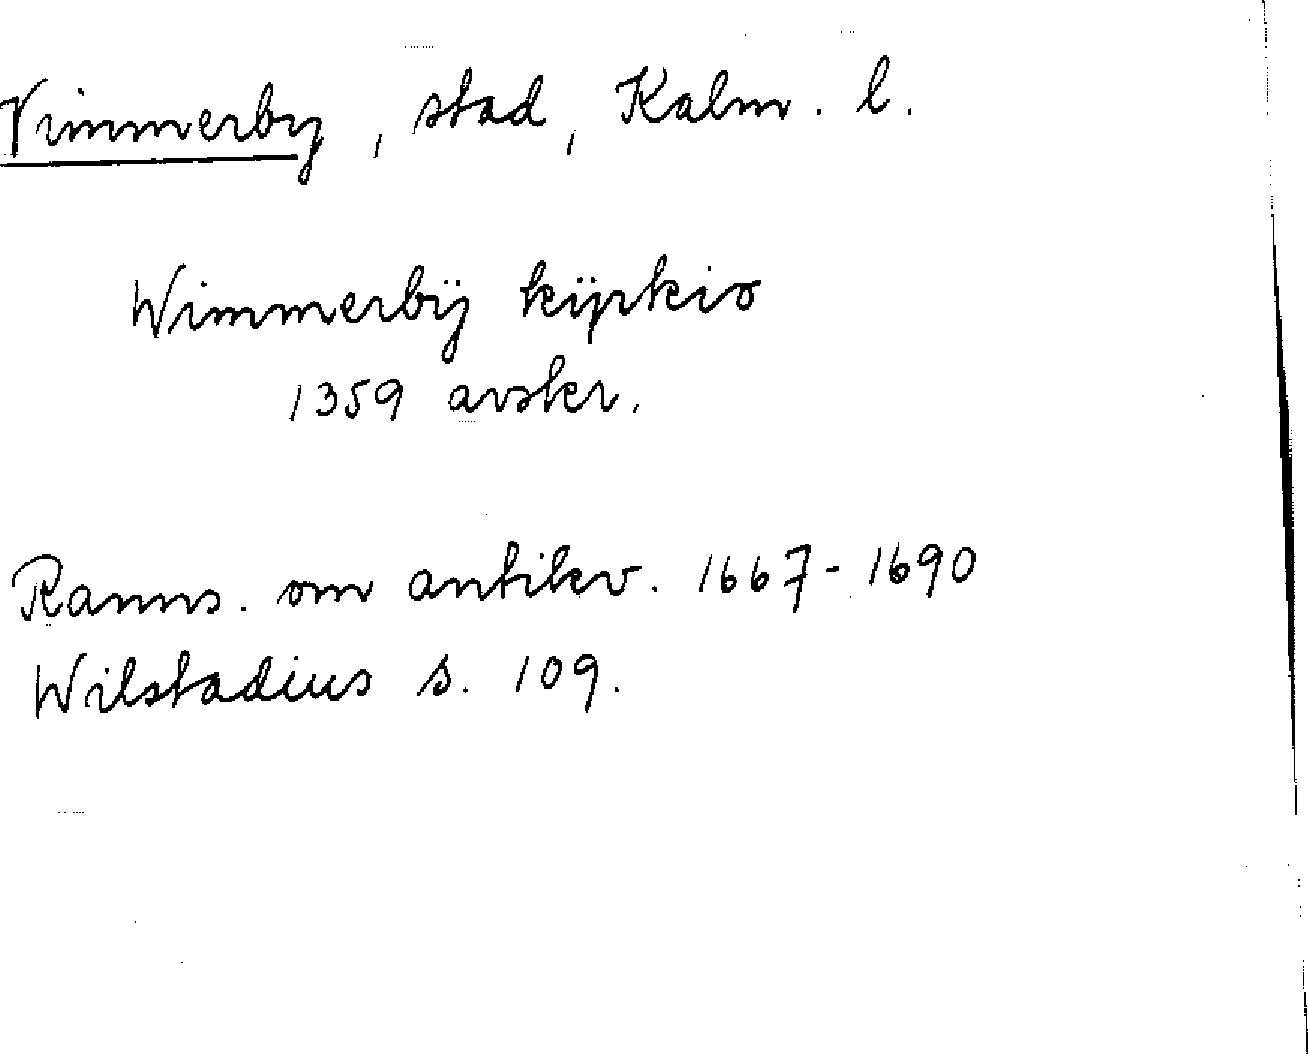 Vimmerby, stad, Kalm. l.
Wimmerbÿ kÿrkio
1359 avskr.
Ranns. om antikv. 1667-1690
Wilstadius s. 109.